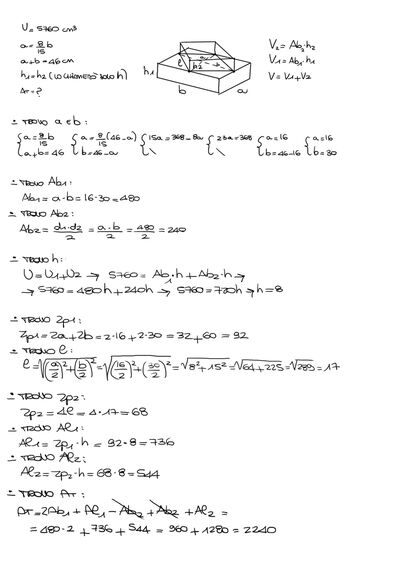 V = 5760 cm³
a = 8/15 b
a+b = 46 cm
h1 = h2 (LO CHIAMERÒ SOLO h)
AT = ?
h1 e h2 b a
V2 = Ab2·h2
V1 = Ab1·h1
V = V1+V2
- TROVO a e b:
{a = 8/15 b {a = 8/15 (46-a) {15a = 368-8a {23a = 368 {a = 16 {a = 16
{a+b = 46 {b = 46-a {\\ {\\ {b = 46-16 {b = 30
- TROVO Ab1:
Ab1 = a·b = 16·30 = 480
- TROVO Ab2:
Ab2 = d1·d2/2 = a·b/2 = 480/2 = 240
- TROVO h:
V = V1+V2 → 5760 = Ab1·h + Ab2·h →
→ 5760 = 480h + 240h → 5760 = 720h → h = 8
- TROVO 2p1:
2p1 = 2a+2b = 2·16+2·30 = 32+60 = 92
- TROVO l:
l = √((a/2)²+(b/2)²) = √((16/2)²+(30/2)²) = √8²+15² = √64+225 = √289 = 17
- TROVO 2p2:
2p2 = 4l = 4·17 = 68
- TROVO Al1:
Al1 = 2p1·h = 92·8 = 736
- TROVO Al2:
Al2 = 2p2·h = 68·8 = 544
- TROVO AT:
AT = 2Ab1 + Al1 - Ab2 + Ab2 + Al2 =
= 480·2 + 736 + 544 = 960 + 1280 = 2240